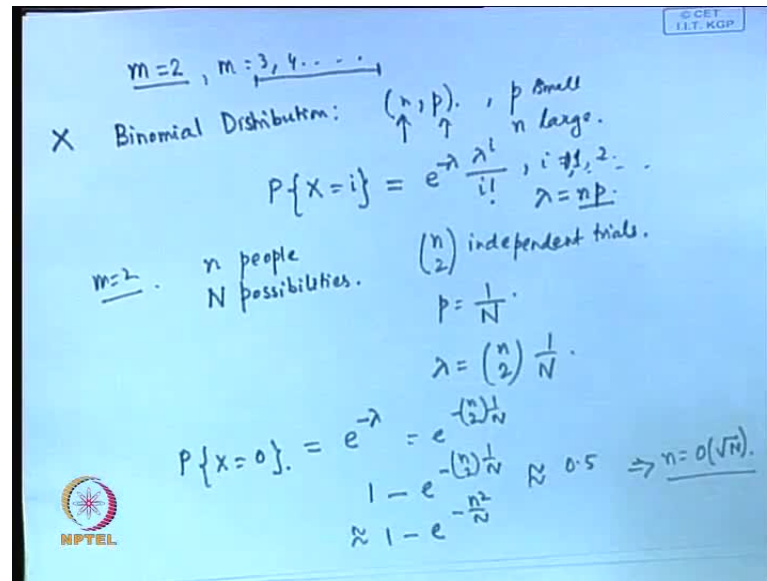 © CET
I.I.T. KGP
m=2 , m = 3, 4 . . . . .
X Binomial Distribution: (n, p). , p small
n large.
P{X=i} = e^{-λ} λ^i / i! , i = 1, 2 . . .
λ = np.
m=2 . n people
N possibilities.
(n 2) independent trials.
p = 1/N .
λ = (n 2) 1/N .
P{X=0}. = e^{-λ} = e^{-(n 2) 1/N}
1 - e^{-(n 2) 1/N} ≈ 0.5 ⇒ n = O(√N).
≈ 1 - e^{-n²/N}
NPTEL